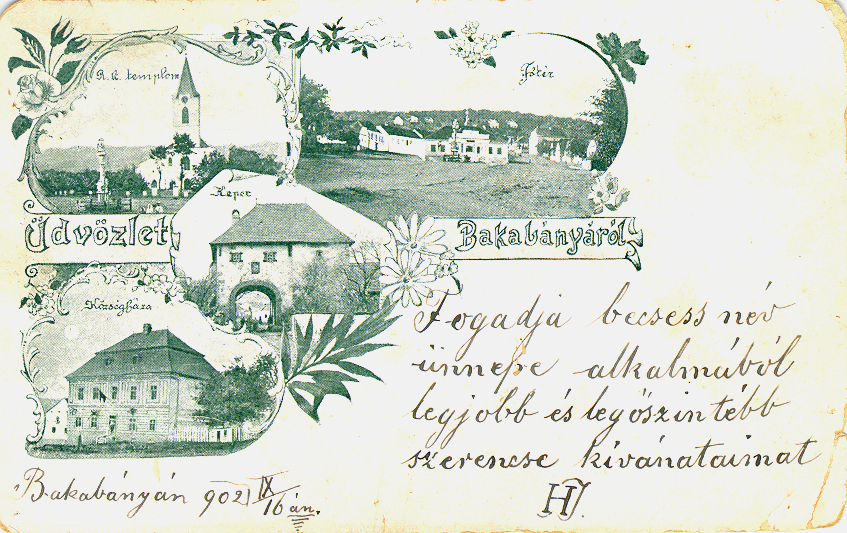 R. k. templom
Főtér
Kepec
Üdvözlet Bakabányáról
Községháza
Fogadja becsess név
ünnepe alkalmából
legjobb és legöszintébb
szerencse kivánataimat
HJ
Bakabányán 902 IX/16 án.